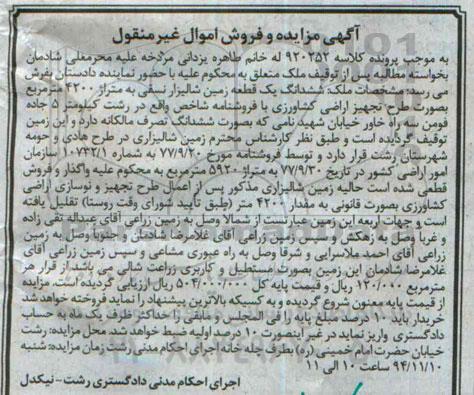 آگهی مزایده و فروش اموال غیر منقول
به موجب پرونده کلاسه ۹۲۰۲۵۲ له خانم طاهره یزدانی مرکخه علیه محرمعلی شادمان
بخواسته مطالبه پس از توقیف ملک متعلق به محکوم علیه با حضور نماینده دادستان بفرش
می رسد: مشخصات ملک: ششدانگ یک قطعه زمین شالیزار نسقی به متراژ ۴۲۰۰ مترمربع
بصورت طرح تجهیز اراضی کشاورزی با فروشنامه شاخص واقع در رشت کیلومتر ۵ جاده
فومن سه راه خاور خیابان شهید نامی که بصورت ششدانگ تصرف مالکانه دارد و این زمین
توقیف گردیده است و طبق نظر کارشناس محترم زمین شالیزاری در طرح هادی و حومه
شهرستان رشت قرار دارد و توسط فروشنامه مورخ ۷۷/۹/۲۰ به شماره ۱۰۷۳۲/۱ سازمان
امور اراضی کشور در تاریخ ۷۷/۹/۲۰ به متراژ ۵۹۲۰ مترمربع به محکوم علیه واگذار و فروش
قطعی شده است حالیه زمین شالیزاری مذکور پس از اعمال طرح تجهیز و نوسازی اراضی
کشاورزی بصورت قانونی به مقدار ۴۲۰۰ متر (طبق تأیید شورای وقت روستا) تقلیل یافته
است و جهات اربعه این زمین عبارتست از شمالا وصل به زمین زراعی آقای عبداله تقی زاده
و غربا وصل به زهکش و سپس زمین زراعی آقای غلامرضا شادمان و جنوبا وصل به زمین
زراعی آقای احمد ملاسرایی و شرقا وصل به راه عبوری مشاعی و سپس زمین زراعی آقای
غلامرضا شادمان این زمین بصورت مستطیل و کاربری زراعت شالی می باشد از قرار هر
مترمربع ۱۲۰/۰۰۰ ریال و قیمت پایه کل ۵۰۴/۰۰۰/۰۰۰ ریال ارزیابی گردیده است. مزایده
از قیمت پایه معنون شروع گردیده و به کسیکه بالاترین پیشنهاد را نماید فروخته خواهد شد
خریدار باید ۱۰ درصد مبلغ پایه را فی المجلس و مابقی را حداکثر ظرف یک ماه به حساب
دادگستری واریز نماید در غیر اینصورت ۱۰ درصد اولیه ضبط خواهد شد. محل مزایده: رشت
خیابان حضرت امام خمینی (ره) بطرف چله خانه اجرای احکام مدنی رشت زمان مزایده: شنبه
۹۴/۱۱/۱۰ ساعت ۱۰ الی ۱۱
اجرای احکام مدنی دادگستری رشت - نیکدل